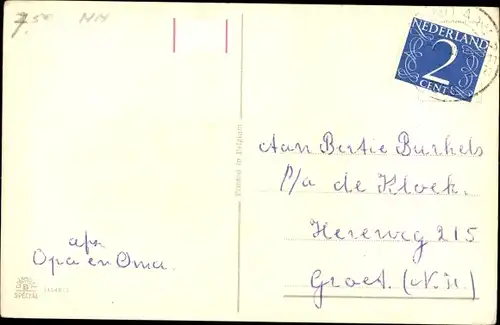 7,50 NH
NEDERLAND
2
CENT
Printed in Belgium
Aan Bertie Burhels
P/a de Kloek.
Hereweg 215
Groet. (N.H.)
afz
Opa en Oma.
B
SPECIAL